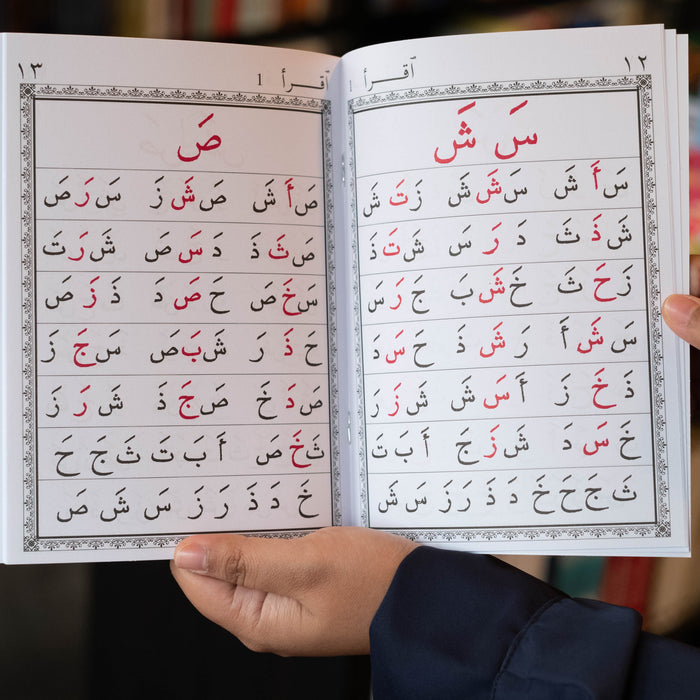 ١٢ ٱقرأ 1
سَ شَ
سَ أَ شَ سَ شَ شَ زَ تَ شَ
شَ ذَ ثَ دَ رَ سَ شَ تَ ذَ
زَ حَ ثَ خَ شَ بَ جَ رَ سَ
سَ شَ أَ رَ شَ ذَ حَ سَ دَ
ذَ خَ زَ أَ سَ شَ شَ زَ رَ
خَ سَ دَ شَ زَ جَ أَ بَ تَ
ثَ جَ حَ خَ دَ ذَ رَ زَ سَ شَ
ٱقرأ 1 ١٣
صَ
صَ أَ شَ صَ شَ زَ سَ رَ صَ
صَ ثَ ذَ دَ سَ صَ شَ رَ تَ
سَ خَ صَ حَ صَ دَ ذَ زَ صَ
حَ ذَ رَ شَ بَ صَ سَ جَ زَ
صَ دَ خَ صَ جَ ذَ شَ رَ زَ
ثَ خَ صَ أَ بَ تَ ثَ جَ حَ
خَ دَ ذَ رَ زَ سَ شَ صَ